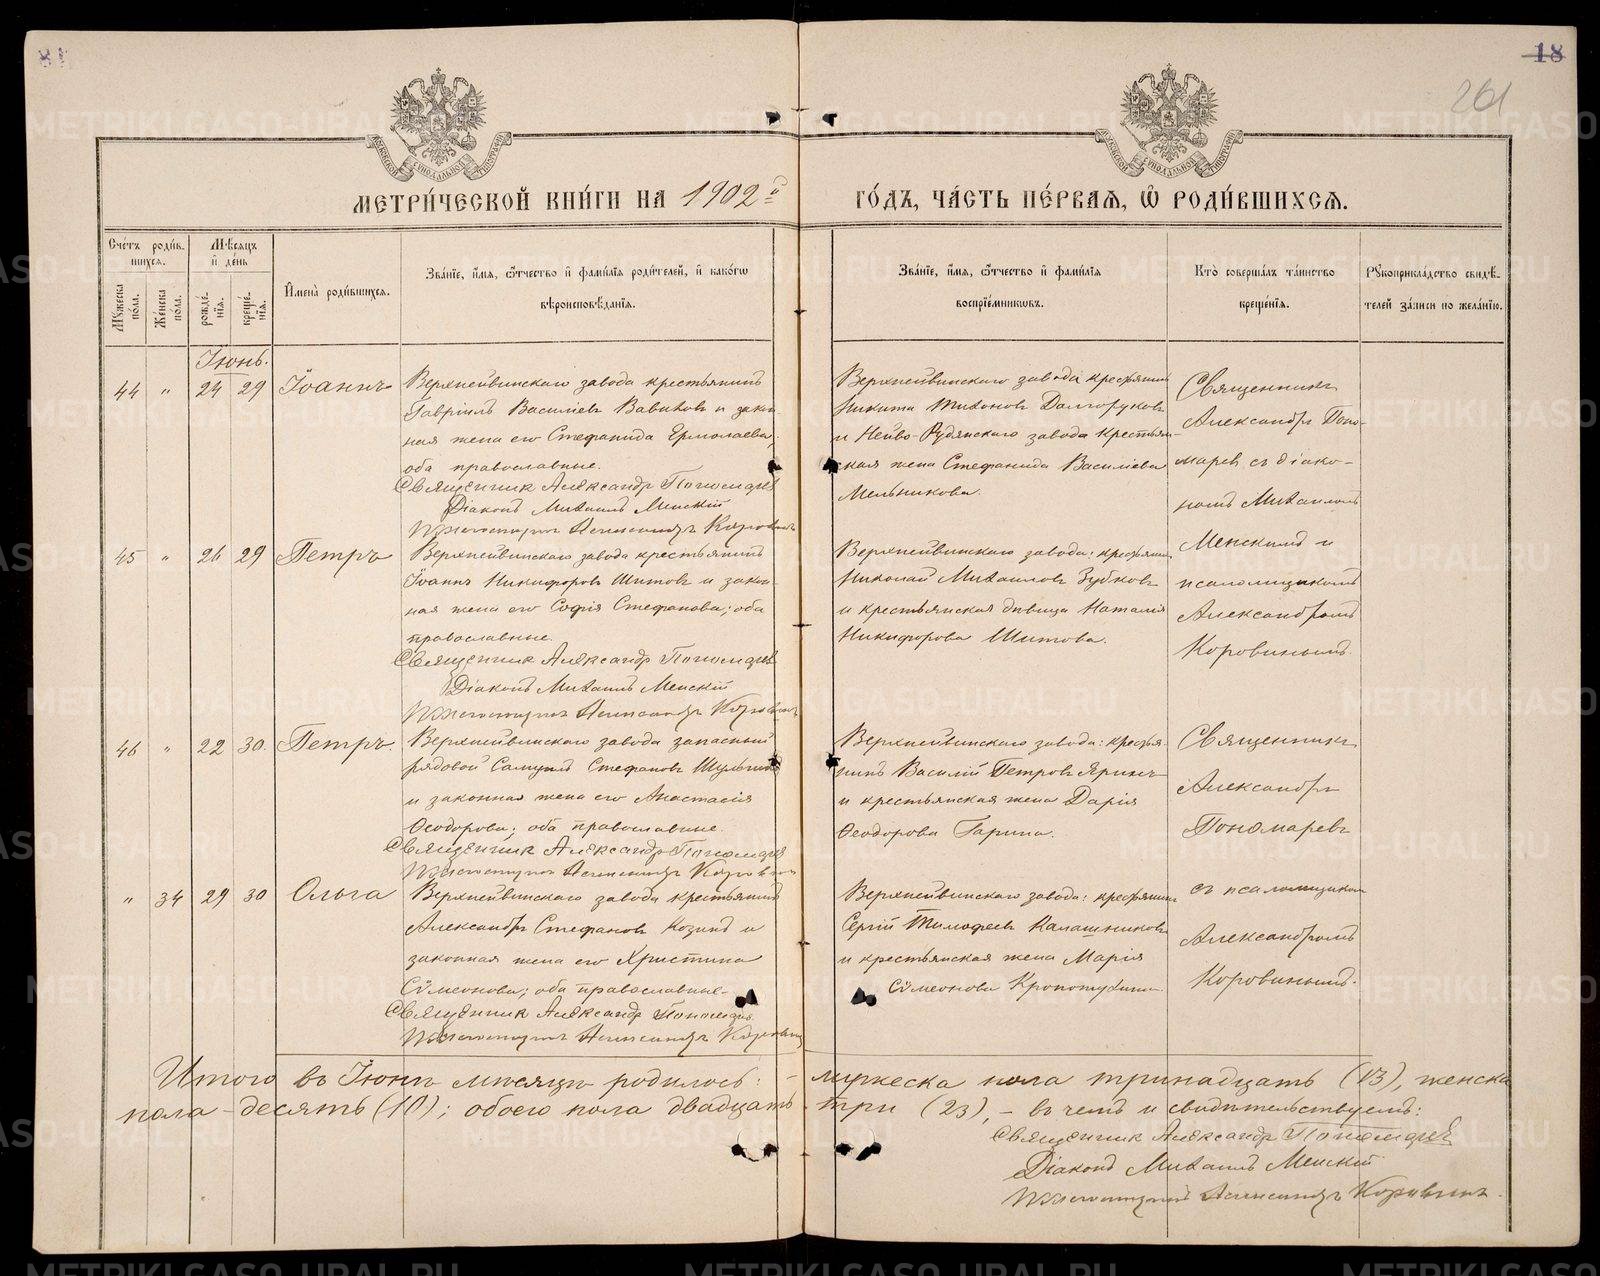 18
261
МЕТРИ́ЧЕСКОЙ КНИ́ГИ НА 1902й
ГО́ДЪ, ЧА́СТЬ ПЕ́РВАѦ, Ѽ РОДИ́ВШИХСѦ.
Сче́тъ роди́вшихсѧ.
Мꙋ́жеска по́ла.
Же́нска по́ла.
Мѣ́сѧцъ и҆ де́нь
рожде́нїѧ.
креще́нїѧ.
И҆мена̀ роди́вшихсѧ.
Зва́нїе, и҆́мѧ, ѻ҆́тчество и҆ фами́лїѧ роди́телей, и҆ како́гѡ
вѣроисповѣ́данїѧ.
Зва́нїе, и҆́мѧ, ѻ҆́тчество и҆ фами́лїѧ
воспрїе́мникѡвъ.
Кто̀ соверша́лъ та́инство
креще́нїѧ.
Рꙋкоприкла́дство свидѣ́телей за́писи по жела́нїю.
Іюнь.
44 " 24 29 Іоаннъ
Верхнейвинскаго завода крестьянинъ
Гавріилъ Василіевъ Вавиловъ и закон-
ная жена его Стефанида Ермолаева,
оба православные.
Священник Александр Пономарев
Діаконъ Михаилъ Менскій
Псаломщикъ Александръ Коровинъ
Верхнейвинскаго завода крестьянинъ
Никита Тихоновъ Долгоруковъ
и Нейво-Рудянскаго завода крестьян-
ская жена Стефанида Василіева
Мельникова.
Священникъ
Александръ Поно-
маревъ съ діако-
номъ Михаиломъ
Менскимъ и
псаломщикомъ
Александромъ
Коровинымъ.
45 " 26 29 Петръ
Верхнейвинскаго завода крестьянинъ
Іоаннъ Никифоровъ Шитовъ и закон-
ная жена его Софія Стефанова; оба
православные.
Священник Александр Пономарев
Діаконъ Михаилъ Менскій
Псаломщикъ Александръ Коровинъ
Верхнейвинскаго завода: крестьянинъ
Николай Михаиловъ Зубковъ
и крестьянская дѣвица Наталія
Никифорова Шитова.
46 " 22 30 Петръ
Верхнейвинскаго завода запасный
рядовой Самуилъ Стефановъ Шульгинъ
и законная жена его Анастасія
Ѳеодорова; оба православные.
Священник Александр Пономарев
Псаломщикъ Александръ Коровинъ
Верхнейвинскаго завода: крестья-
нинъ Василій Петровъ Яринъ
и крестьянская жена Дарія
Ѳеодорова Гарина.
Священникъ
Александръ
Пономаревъ
съ псаломщикомъ
Александромъ
Коровинымъ.
" 34 29 30 Ольга
Верхнейвинскаго завода крестьянинъ
Александръ Стефановъ Козинъ и
законная жена его Христина
Сѵмеонова; оба православные.
Священник Александр Пономарев
Псаломщикъ Александръ Коровинъ
Верхнейвинскаго завода: крестьянинъ
Сергій Тимофеевъ Калашниковъ
и крестьянская жена Марія
Сѵмеонова Кропотухина.
Итого въ Іюнѣ мѣсяцѣ родилось: - мужеска пола тринадцать (13), женска
пола - десять (10); обоего пола двадцать три (23), - въ чемъ и свидѣтельствуемъ:
Священник Александр Пономарев
Діаконъ Михаилъ Менскій
Псаломщикъ Александръ Коровинъ.
METRIKI.GASO-URAL.RU